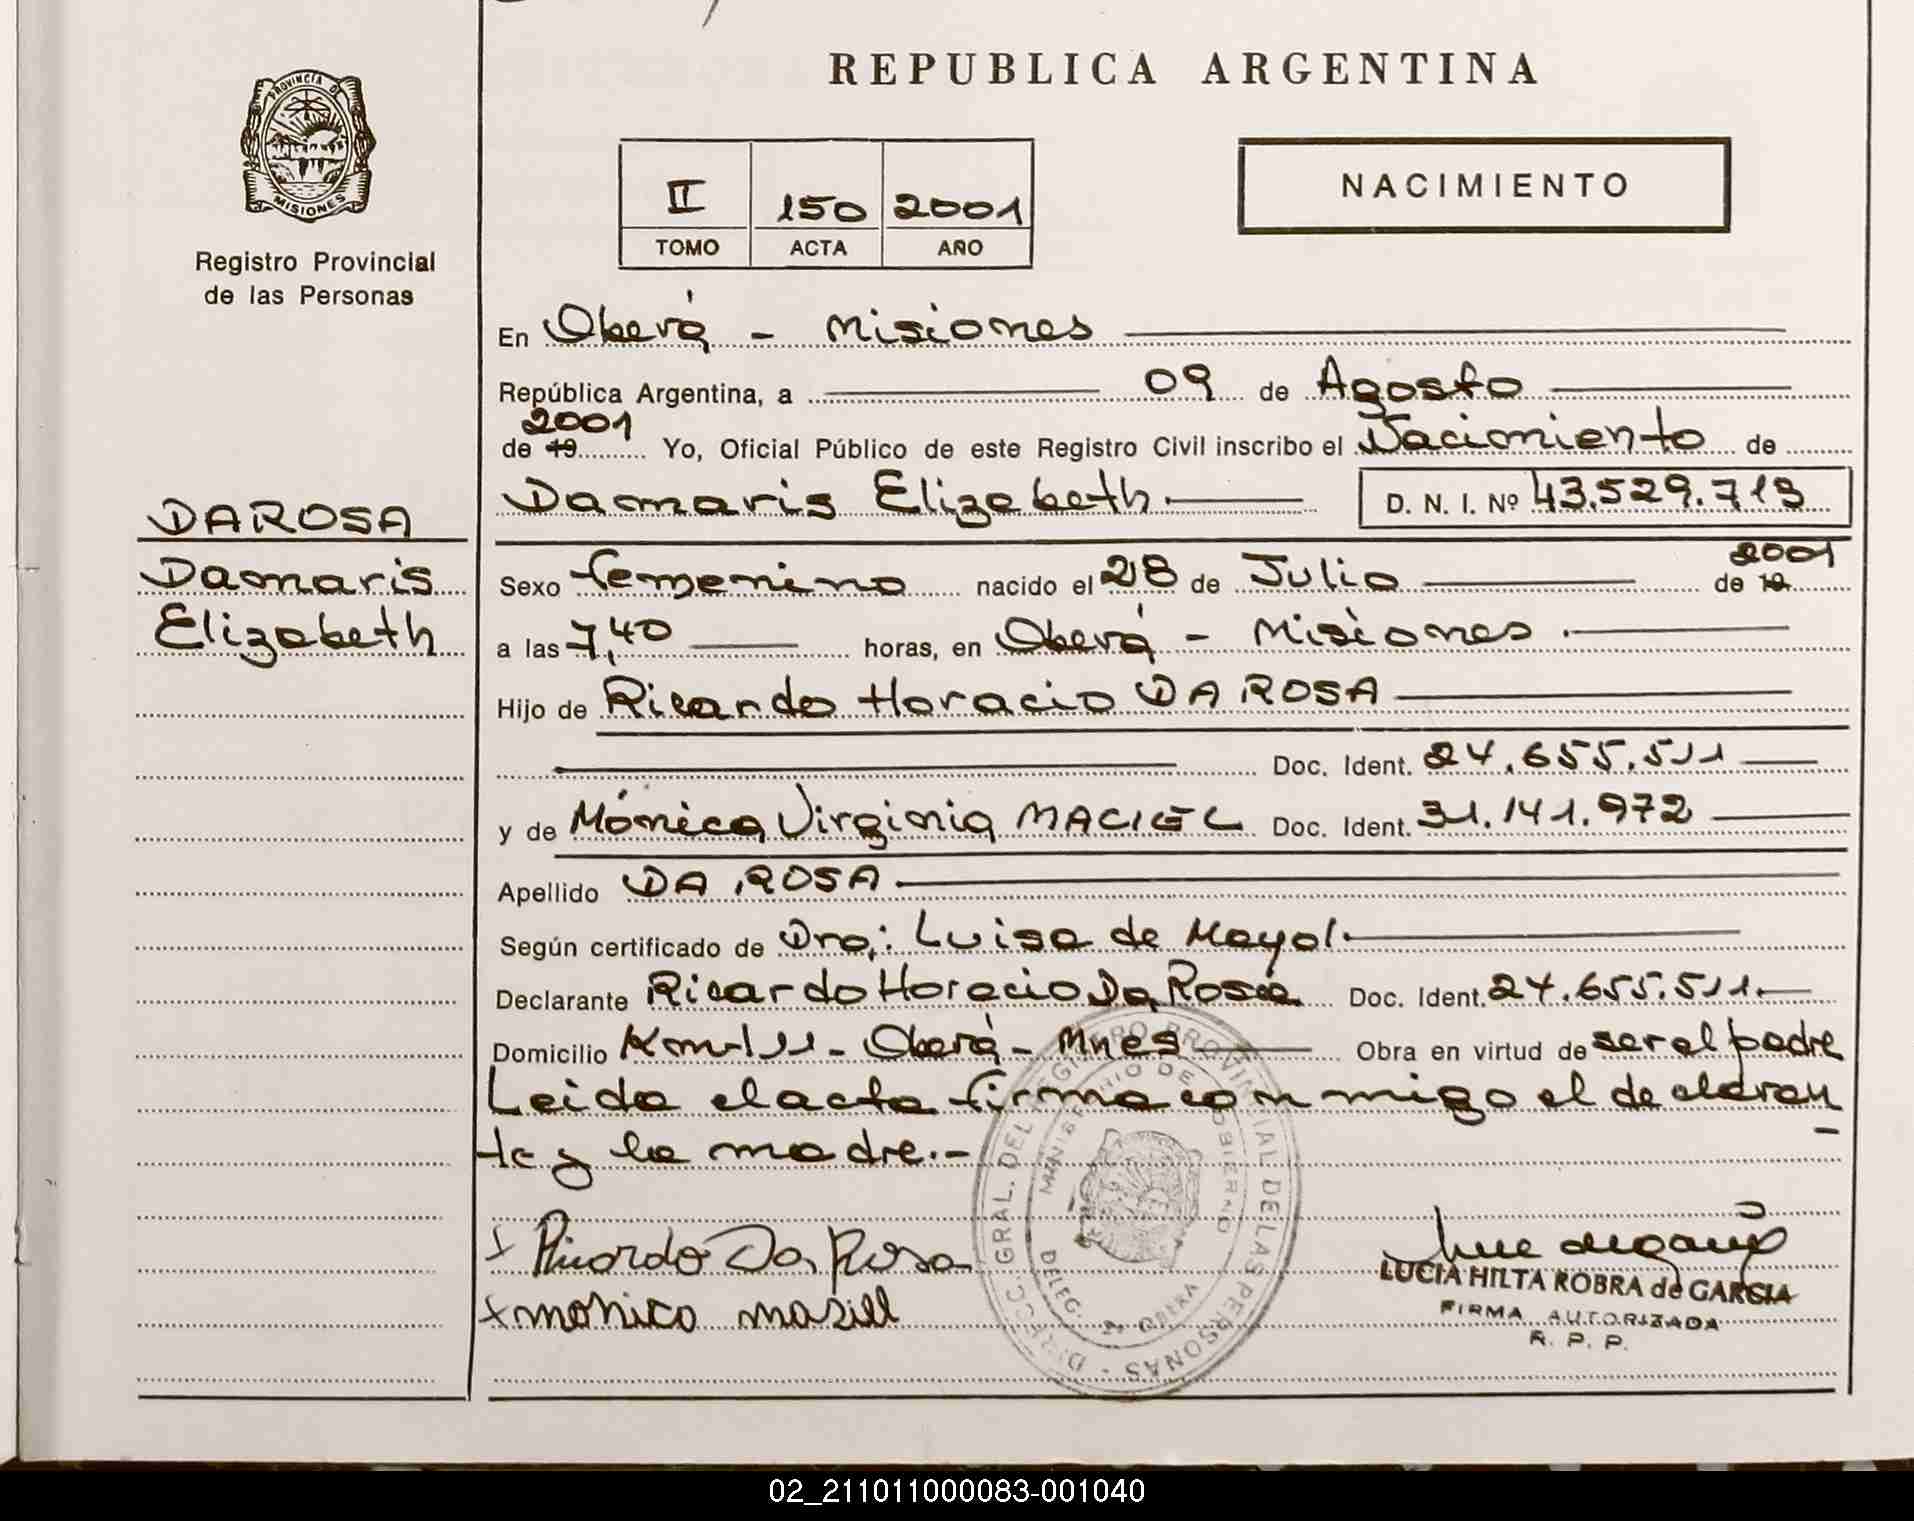 REPUBLICA ARGENTINA
PROVINCIA DE
MISIONES
Registro Provincial
de las Personas
II 150 2001
TOMO ACTA AÑO
NACIMIENTO
En Oberá - Misiones
República Argentina, a 09 de Agosto
2001
de 19 Yo, Oficial Público de este Registro Civil inscribo el Nacimiento de
Damaris Elizabeth.- D. N. I. Nº 43.529.713
DAROSA
Damaris
Elizabeth
Sexo femenino nacido el 28 de Julio de 19 2001
a las 7,40 horas, en Oberá - Misiones.-
Hijo de Ricardo Horacio DA ROSA
Doc. Ident. 24.655.511
y de Mónica Virginia MACIEL Doc. Ident. 31.141.972
Apellido DA ROSA
Según certificado de Dra: Luisa de Mayol.
Declarante Ricardo Horacio Da Rosa Doc. Ident. 24.655.511.-
Domicilio Km-11- Oberá- Mnes Obra en virtud de ser el padre
Leida el acta firma conmigo el declaran
te y la madre.-
x Ricardo Da Rosa
x monica masiell
DIRECC. GRAL. DEL REGISTRO PROVINCIAL DE LAS PERSONAS -
MINISTERIO DE GOBIERNO
DELEG. OBERA
LUCIA HILTA ROBRA de GARCIA
FIRMA AUTORIZADA
R. P. P.
02_211011000083-001040